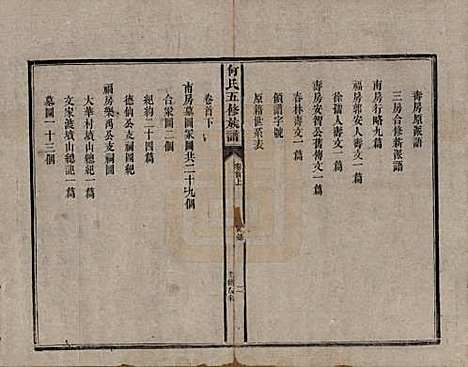 壽房原派語
三房合修新派語
南房行略九篇
福房郭安人壽文一篇
徐孺人壽文一篇
壽房安智公舊傳文一篇
春林壽文一篇
領譜字號
原籍世系表
何氏五修族譜
卷首上
二
卷首下
南房墓圖冢圖共二十九個
合葬圖二個
紀約二十四篇
德仙公支祠圖紀
福房樂禹公支祠圖
大華村墳山總紀一篇
文家灣墳山總記一篇
墓圖一十三個